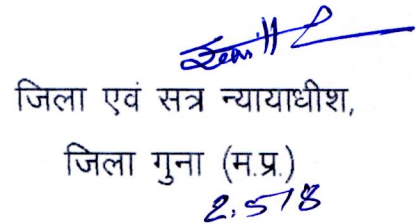 जिला एवं सत्र न्यायाधीश,
जिला गुना (म.प्र.)
2.5/8